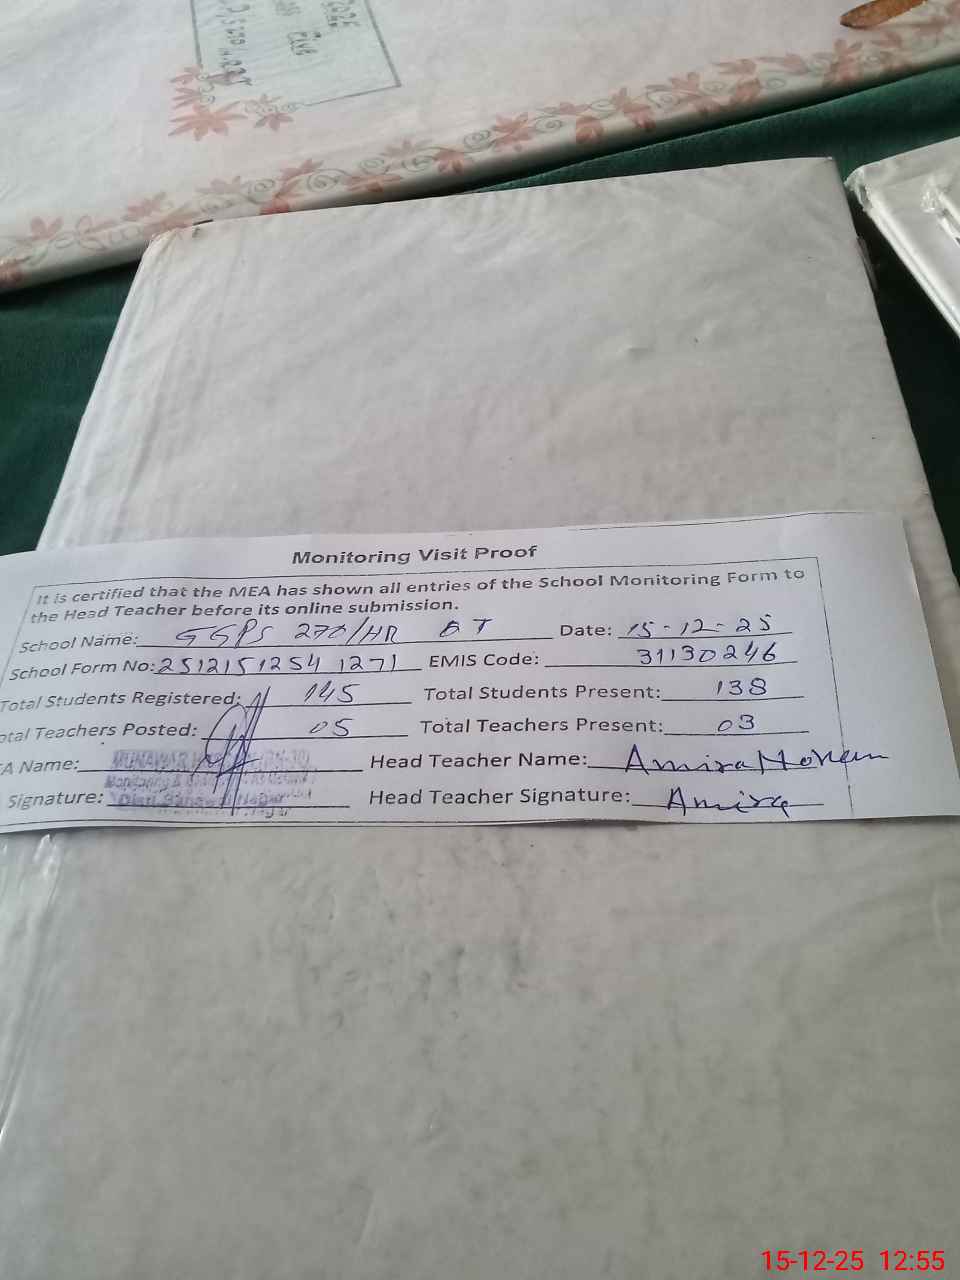 2025
Five
Monitoring Visit Proof
It is certified that the MEA has shown all entries of the School Monitoring Form to
the Head Teacher before its online submission.
School Name: GGPS 270/HR Date: 15-12-25
School Form No: 2512151254 1271 EMIS Code: 31130246
Total Students Registered: 145 Total Students Present: 138
otal Teachers Posted: 05 Total Teachers Present: 03
A Name: MUNAWAR Head Teacher Name: Amira
Signature: Head Teacher Signature: Amira
15-12-25 12:55